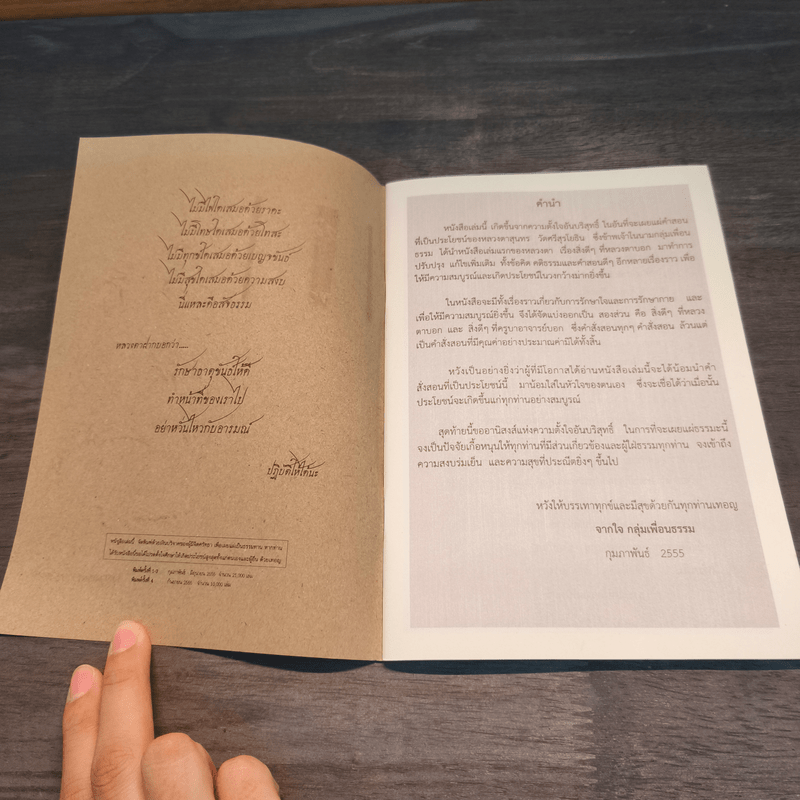 ไม่มีไฟใดเสมอด้วยราคะ
ไม่มีโทษใดเสมอด้วยโทสะ
ไม่มีทุกข์ใดเสมอด้วยเบญจขันธ์
ไม่มีสุขใดเสมอด้วยความสงบ
นี่แหละคือสัจธรรม
หลวงตาฝากบอกว่า.....
รักษาธาตุขันธ์ให้ดี
ทำหน้าที่ของเราไป
อย่าหวั่นไหวกับอารมณ์
ปฏิบัติให้ได้นะ
หนังสือเล่มนี้ จัดพิมพ์ด้วยเงินบริจาคของผู้มีจิตศรัทธา เพื่อเผยแผ่เป็นธรรมทาน หากท่าน
ได้รับหนังสือนี้ขอได้โปรดตั้งใจศึกษาให้เกิดประโยชน์สูงสุดทั้งแก่ตนเองและผู้อื่น ด้วยเทอญ
พิมพ์ครั้งที่ 1-3 กุมภาพันธ์ - มิถุนายน 2555 จำนวน 25,000 เล่ม
พิมพ์ครั้งที่ 4 กันยายน 2555 จำนวน 10,000 เล่ม
คำนำ
หนังสือเล่มนี้ เกิดขึ้นจากความตั้งใจอันบริสุทธิ์ ในอันที่จะเผยแผ่คำสอน
ที่เป็นประโยชน์ของหลวงตาสุนทร วัดศรีสุรโยธิน ซึ่งข้าพเจ้าในนามกลุ่มเพื่อน
ธรรม ได้นำหนังสือเล่มแรกของหลวงตา เรื่องสิ่งดีๆ ที่หลวงตาบอก มาทำการ
ปรับปรุง แก้ไขเพิ่มเติม ทั้งข้อคิด คติธรรมและคำสอนดีๆ อีกหลายเรื่องราว เพื่อ
ให้มีความสมบูรณ์และเกิดประโยชน์ในวงกว้างมากยิ่งขึ้น
ในหนังสือจะมีทั้งเรื่องราวเกี่ยวกับการรักษาใจและการรักษากาย และ
เพื่อให้มีความสมบูรณ์ยิ่งขึ้น จึงได้จัดแบ่งออกเป็น สองส่วน คือ สิ่งดีๆ ที่หลวง
ตาบอก และ สิ่งดีๆ ที่ครูบาอาจารย์บอก ซึ่งคำสั่งสอนทุกๆ คำสั่งสอน ล้วนแต่
เป็นคำสั่งสอนที่มีคุณค่าอย่างประมาณค่ามิได้ทั้งสิ้น
หวังเป็นอย่างยิ่งว่าผู้ที่มีโอกาสได้อ่านหนังสือเล่มนี้จะได้น้อมนำคำ
สั่งสอนที่เป็นประโยชน์นี้ มาน้อมใส่ในหัวใจของตนเอง ซึ่งจะเชื่อได้ว่าเมื่อนั้น
ประโยชน์จะเกิดขึ้นแก่ทุกท่านอย่างสมบูรณ์
สุดท้ายนี้ขออานิสงส์แห่งความตั้งใจอันบริสุทธิ์ ในการที่จะเผยแผ่ธรรมะนี้
จงเป็นปัจจัยเกื้อหนุนให้ทุกท่านที่มีส่วนเกี่ยวข้องและผู้ใฝ่ธรรมทุกท่าน จงเข้าถึง
ความสงบร่มเย็น และความสุขที่ประณีตยิ่งๆ ขึ้นไป
หวังให้บรรเทาทุกข์และมีสุขด้วยกันทุกท่านเทอญ
จากใจ กลุ่มเพื่อนธรรม
กุมภาพันธ์ 2555